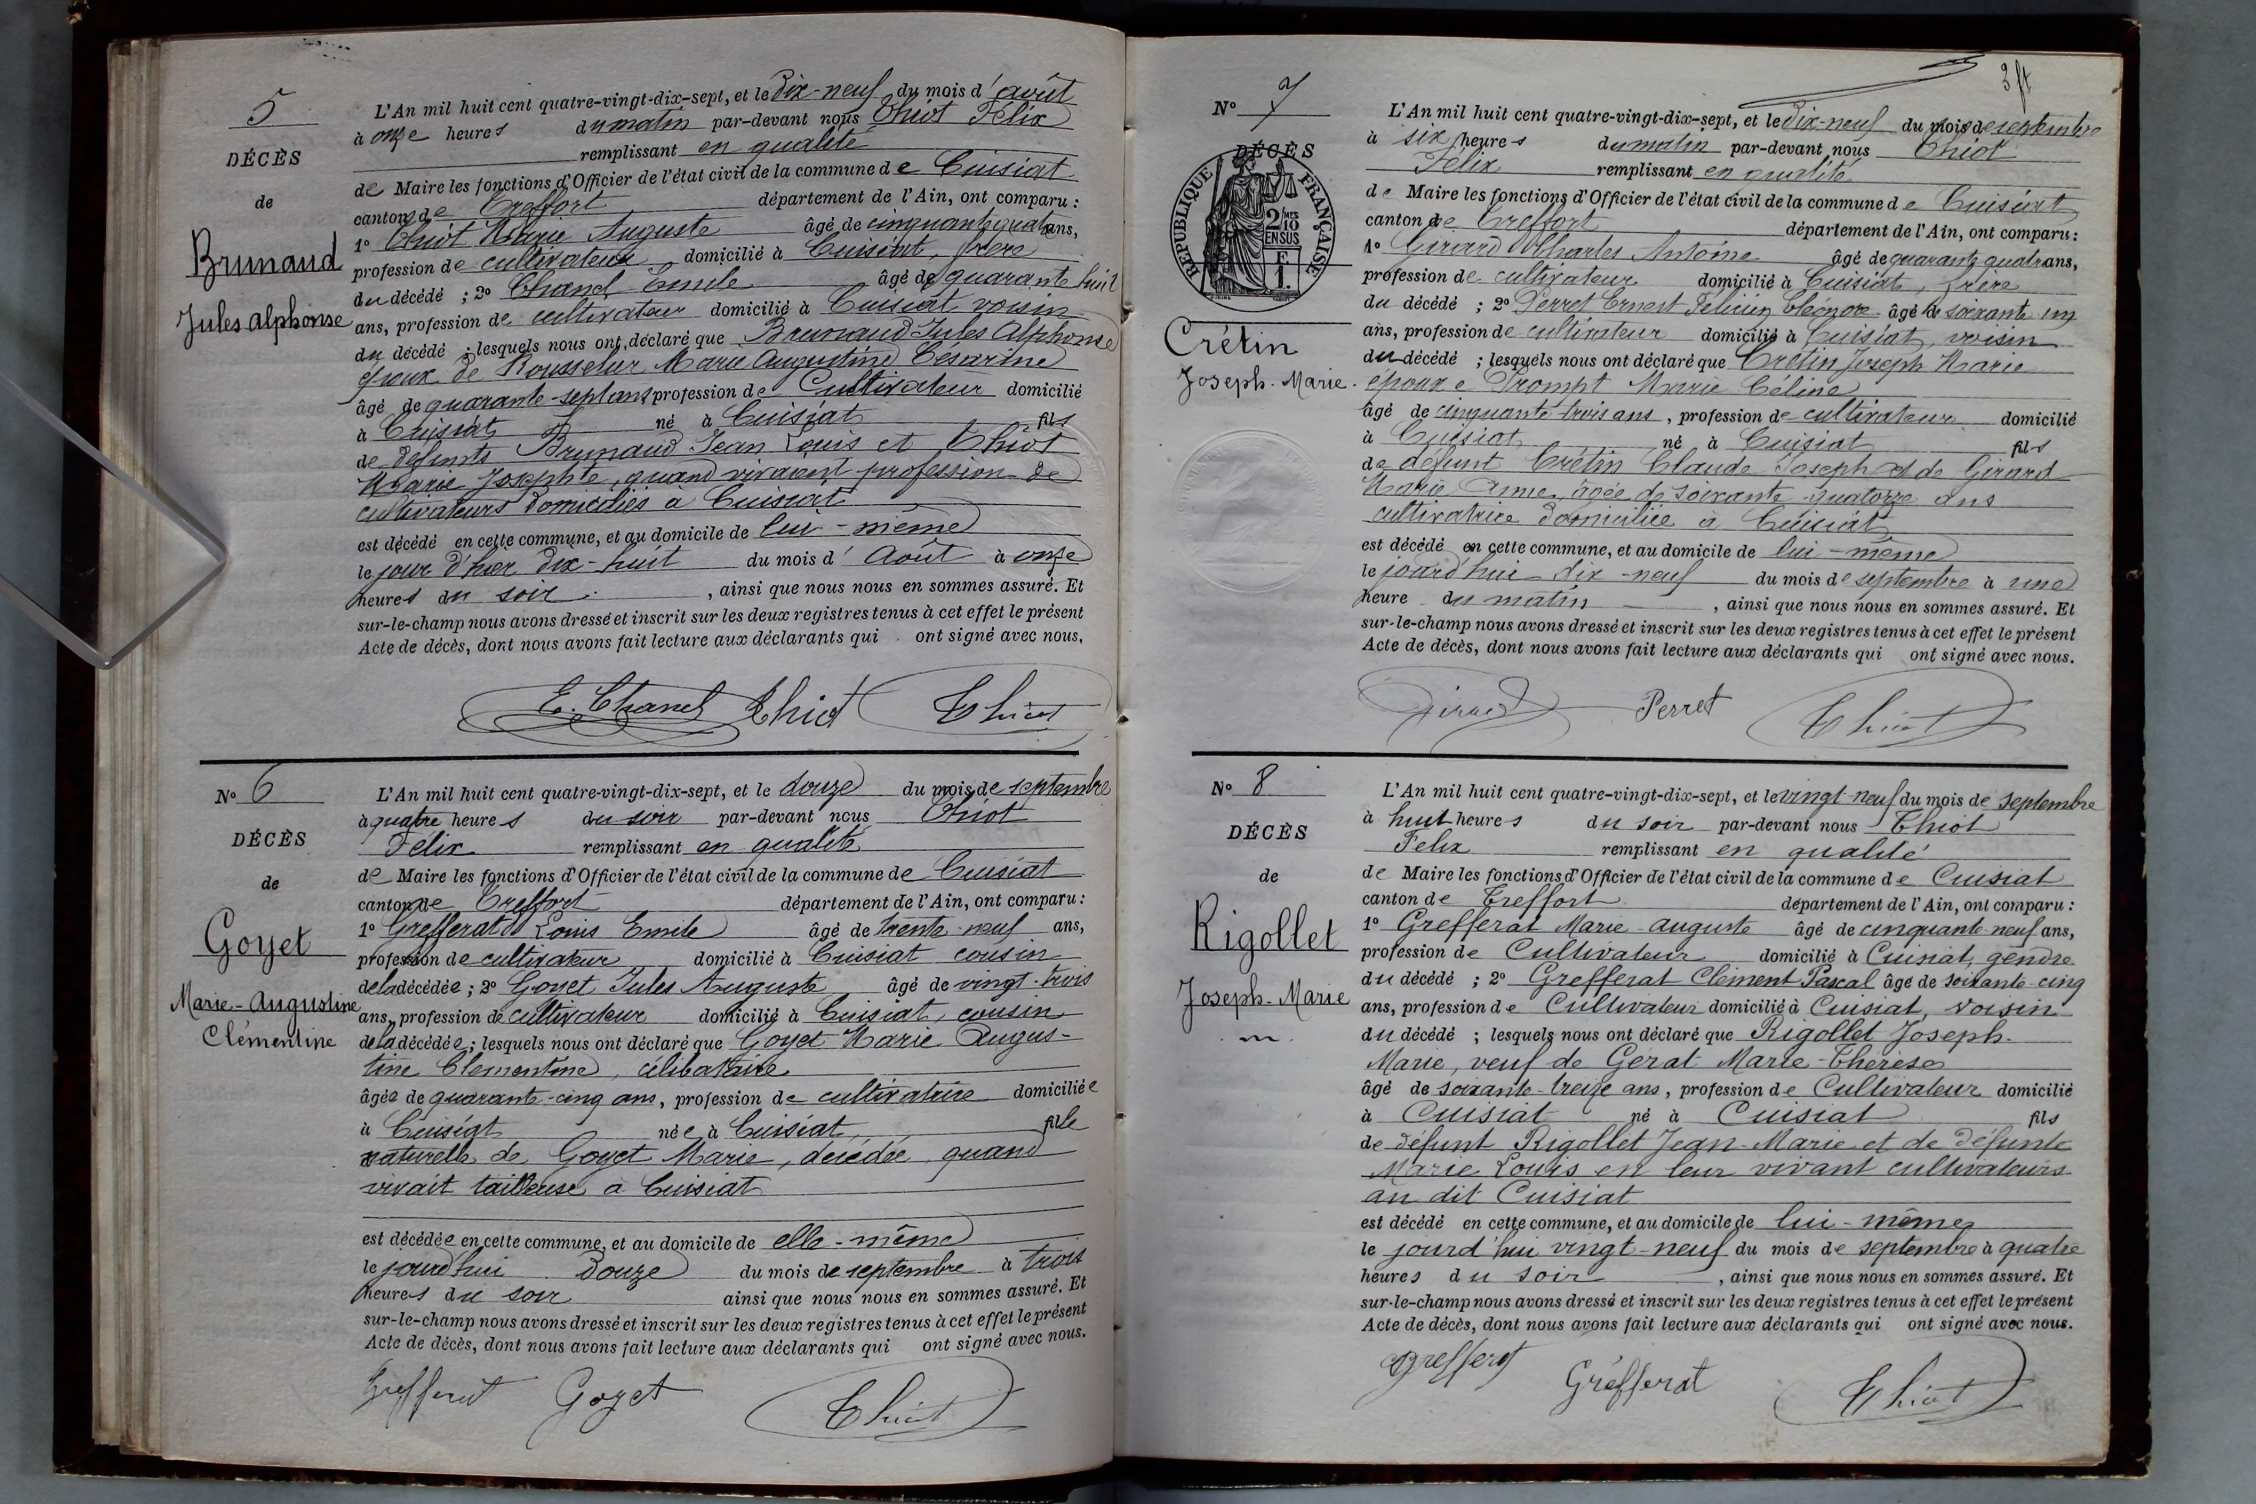 5
DÉCÈS
de
Brunaud
Jules Alphonse
L'An mil huit cent quatre-vingt-dix-sept, et le Dix-neuf du mois d'août
à onze heures du matin par-devant nous Thiot Félix
remplissant en qualité
de Maire les fonctions d'Officier de l'état civil de la commune de Cuisiat
canton de Treffort département de l'Ain, ont comparu :
1° Thiot Marie Auguste âgé de cinquante quatre ans,
profession de cultivateur domicilié à Cuisiat, frère
du décédé ; 2° Chanel Emile âgé de quarante huit
ans, profession de cultivateur domicilié à Cuisiat voisin
du décédé ; lesquels nous ont déclaré que Brunaud Jules Alphonse
époux de Rousselur Marie Augustine Césarine
âgé de quarante-sept ans profession de Cultivateur domicilié
à Cuisiat né à Cuisiat fils
de défunts Brunaud Jean Louis et Thiot
Marie Josephte, quand vivaient profession de
cultivateurs domiciliés à Cuisiat
est décédé en cette commune, et au domicile de lui-même
le jour d'hier dix-huit du mois d'Août à onze
heures du soir, ainsi que nous nous en sommes assuré. Et
sur-le-champ nous avons dressé et inscrit sur les deux registres tenus à cet effet le présent
Acte de décès, dont nous avons fait lecture aux déclarants qui ont signé avec nous,
E. Chanel Thiot Thiot
N° 6
DÉCÈS
de
Goyet
Marie-Augustine
Clémentine
L'An mil huit cent quatre-vingt-dix-sept, et le douze du mois de septembre
à quatre heures du soir par-devant nous Thiot
Félix remplissant en qualité
de Maire les fonctions d'Officier de l'état civil de la commune de Cuisiat
canton de Treffort département de l'Ain, ont comparu :
1° Grefferat Louis Emile âgé de trente-neuf ans,
profession de cultivateur domicilié à Cuisiat cousin
de la décédée ; 2° Goyet Jules Auguste âgé de vingt-trois
ans, profession de cultivateur domicilié à Cuisiat, cousin
de la décédée ; lesquels nous ont déclaré que Goyet Marie Augus-
tine Clémentine, célibataire
âgée de quarante-cinq ans, profession de cultivatrice domiciliée
à Cuisiat née à Cuisiat, fille
naturelle de Goyet Marie, décédée quand
vivait tailleuse à Cuisiat
est décédée en cette commune, et au domicile de elle-même
le jourd'hui Douze du mois de septembre à trois
heures du soir ainsi que nous nous en sommes assuré. Et
sur-le-champ nous avons dressé et inscrit sur les deux registres tenus à cet effet le présent
Acte de décès, dont nous avons fait lecture aux déclarants qui ont signé avec nous.
Grefferat Goyet Thiot
3 ft
N° 7
DÉCÈS
RÉPUBLIQUE FRANÇAISE
2/10 MES
EN SUS
F.
1.
Crétin
Joseph-Marie.
L'An mil huit cent quatre-vingt-dix-sept, et le dix-neuf du mois de septembre
à six heures du matin par-devant nous Thiot
Félix remplissant en qualité
de Maire les fonctions d'Officier de l'état civil de la commune de Cuisiat
canton de Treffort département de l'Ain, ont comparu :
1° Girard Charles Antoine âgé de quarante quatre ans,
profession de cultivateur domicilié à Cuisiat, frère
du décédé ; 2° Perret Ernest Félicien Eléonore âgé de soixante un
ans, profession de cultivateur domicilié à Cuisiat, voisin
du décédé ; lesquels nous ont déclaré que Crétin Joseph Marie
époux e Prompt Marie Céline
âgé de cinquante trois ans, profession de cultivateur domicilié
à Cuisiat né à Cuisiat fils
de défunt Crétin Claude Joseph et de Girard
Marie Anne, âgée de soixante quatorze ans
cultivatrice domiciliée à Cuisiat
est décédé en cette commune, et au domicile de lui-même
le jourd'hui dix-neuf du mois de septembre à une
heure du matin, ainsi que nous nous en sommes assuré. Et
sur-le-champ nous avons dressé et inscrit sur les deux registres tenus à cet effet le présent
Acte de décès, dont nous avons fait lecture aux déclarants qui ont signé avec nous.
Girard Perret Thiot
N° 8
DÉCÈS
de
Rigollet
Joseph-Marie
L'An mil huit cent quatre-vingt-dix-sept, et le vingt-neuf du mois de septembre
à huit heures du soir par-devant nous Thiot
Felix remplissant en qualité
de Maire les fonctions d'Officier de l'état civil de la commune de Cuisiat
canton de Treffort département de l'Ain, ont comparu :
1° Grefferat Marie-auguste âgé de cinquante neuf ans,
profession de Cultivateur domicilié à Cuisiat, gendre
du décédé ; 2° Grefferat Clément Pascal âgé de soixante-cinq
ans, profession de Cultivateur domicilié à Cuisiat, voisin
du décédé ; lesquels nous ont déclaré que Rigollet Joseph-
Marie, veuf de Gérat Marie-Thérèse
âgé de soixante-treize ans, profession de Cultivateur domicilié
à Cuisiat né à Cuisiat fils
de défunt Rigollet Jean-Marie et de défunte
Marie Louis en leur vivant cultivateurs
au dit Cuisiat
est décédé en cette commune, et au domicile de lui-même
le jourd'hui vingt-neuf du mois de septembre à quatre
heures du soir, ainsi que nous nous en sommes assuré. Et
sur-le-champ nous avons dressé et inscrit sur les deux registres tenus à cet effet le présent
Acte de décès, dont nous avons fait lecture aux déclarants qui ont signé avec nous.
Grefferat Grefferat Thiot